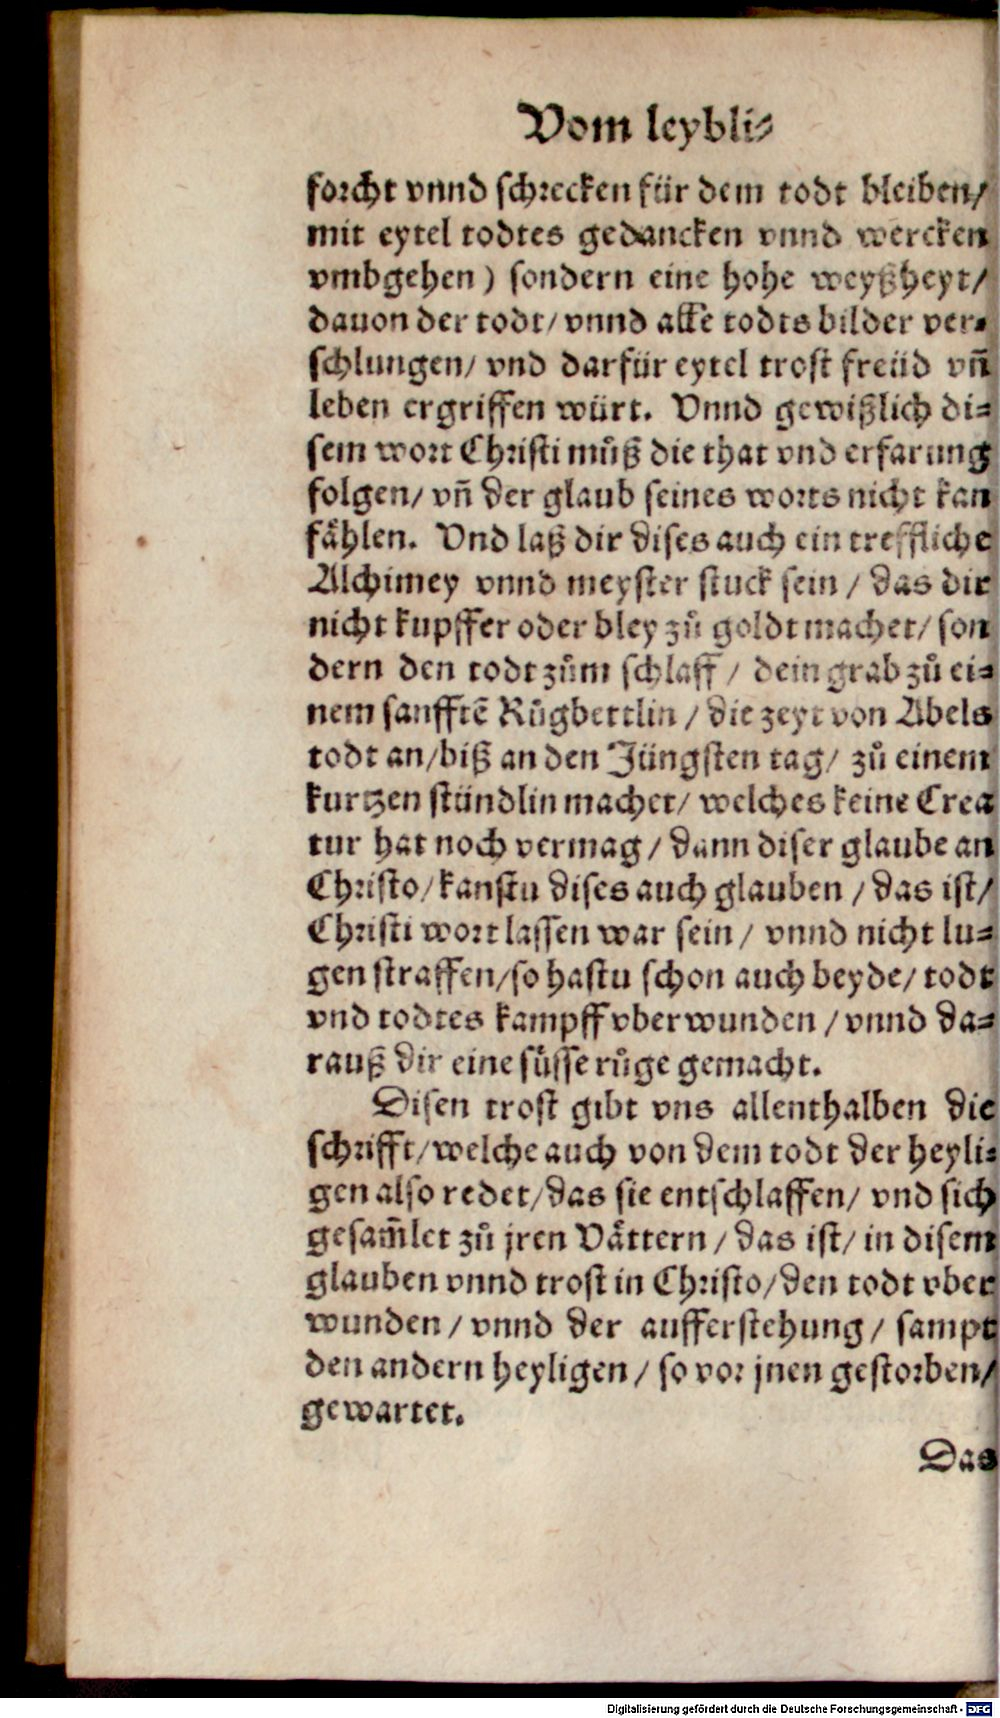 Vom leybli⸗
forcht vnnd schrecken für dem todt bleiben/
mit eytel todtes gedancken vnnd wercken
vmbgehen) sondern eine hohe weyßheyt/
dauon der todt/ vnnd alle todts bilder ver⸗
schlungen/ vnd darfür eytel trost freüd vñ
leben ergriffen würt. Vnnd gewißlich di⸗
sem wort Christi můß die that vnd erfarung
folgen/ vñ der glaub seines worts nicht kan
fählen. Vnd laß dir dises auch ein treffliche
Alchimey vnnd meyster stuck sein / das dir
nicht kupffer oder bley zů goldt machet/ son
dern den todt zům schlaff / dein grab zů ei⸗
nem sanfftẽ Růgbettlin / die zeyt von Abels
todt an/biß an den Jüngsten tag/ zů einem
kurtzen stündlin machet/ welches keine Crea
tur hat noch vermag / dann diser glaube an
Christo/ kanstu dises auch glauben / das ist/
Christi wort lassen war sein / vnnd nicht lu⸗
gen straffen/so hastu schon auch beyde/ todt
vnd todtes kampff vberwunden / vnnd da⸗
rauß dir eine süsse růge gemacht.
Disen trost gibt vns allenthalben die
schrifft/welche auch von dem todt der heyli⸗
gen also redet/das sie entschlaffen/ vnd sich
gesam̃let zů jren Vättern / das ist/ in disem
glauben vnnd trost in Christo/den todt vber
wunden / vnnd der aufferstehung / sampt
den andern heyligen / so vor jnen gestorben/
gewartet.
Das
Digitalisierung gefördert durch die Deutsche Forschungsgemeinschaft - DFG